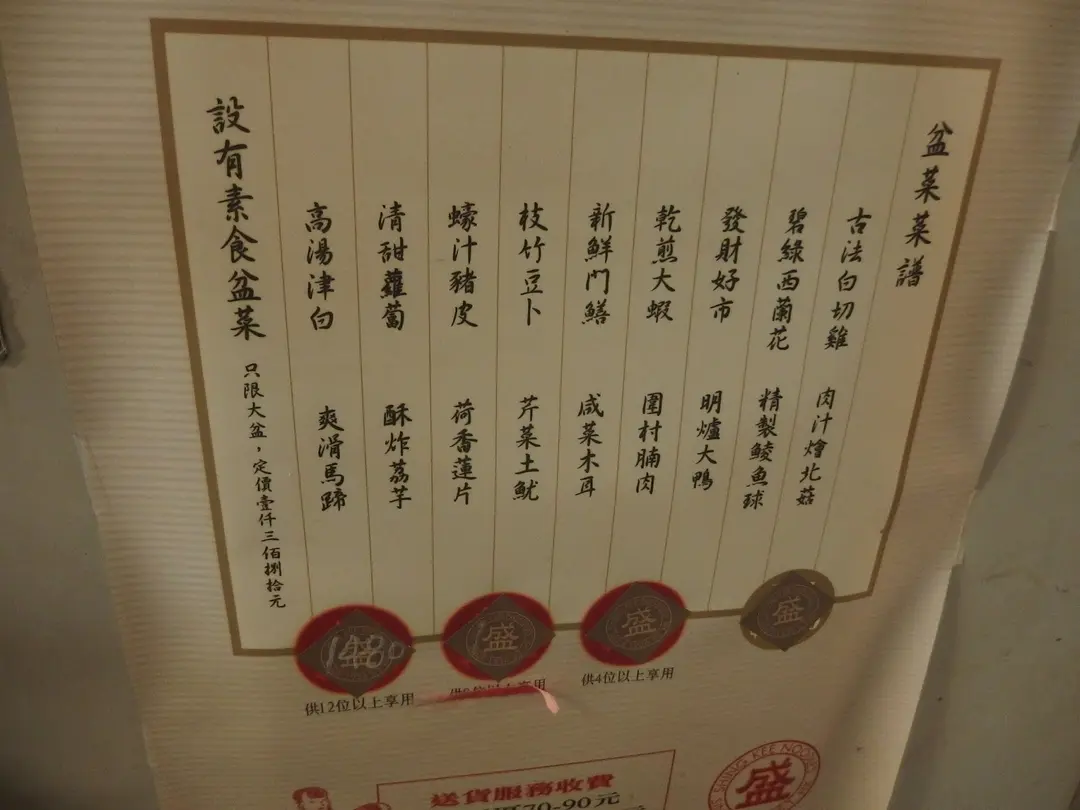 盆菜菜譜
古法白切雞 肉汁燴北菇
碧綠西蘭花 精製鯪魚球
發財好市 明爐大鴨
乾煎大蝦 圍村腩肉
新鮮門鱔 咸菜木耳
枝竹豆卜 芹菜土魷
蠔汁豬皮 荷香蓮片
清甜蘿蔔 酥炸荔芋
高湯津白 爽滑馬蹄
設有素食盆菜 只限大盆，定價壹仟三佰捌拾元
1480
盛
盛
盛
供12位以上享用
供4位以上享用
送貨服務收費
70-90元
SHING KEE NOOD
盛